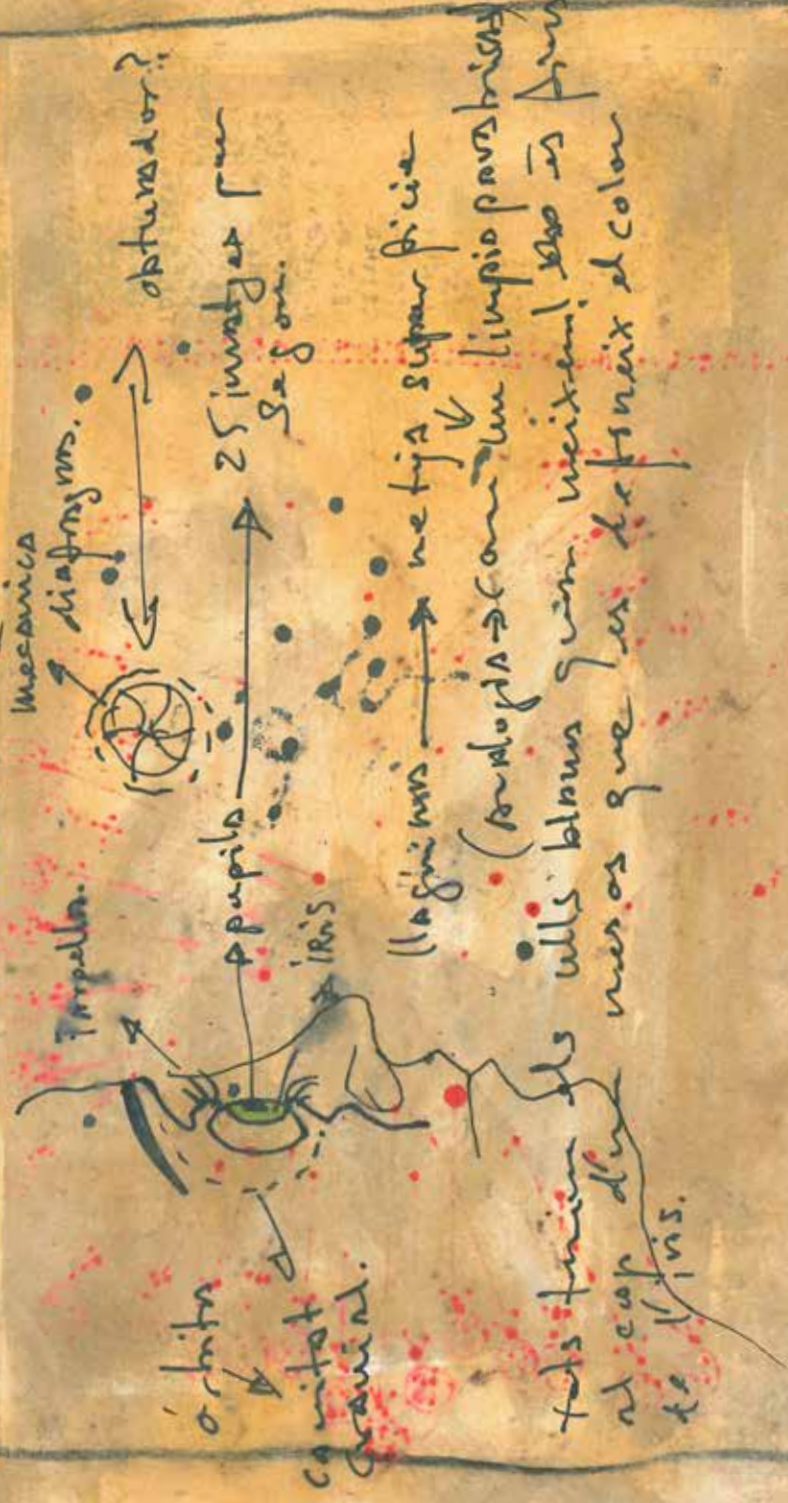 mecànica
diafragma.
obturador?
Parpella.
pupila
25 imatges per
Segon.
iris
òrbita
cavitat
cranial.
llàgrimes
neteja superfície
(analogia → com un limpia parabrisas)
tots tenim els ulls blaus quan neixem! això és fins
al cap d'uns mesos que es defineix el color
de l'iris.